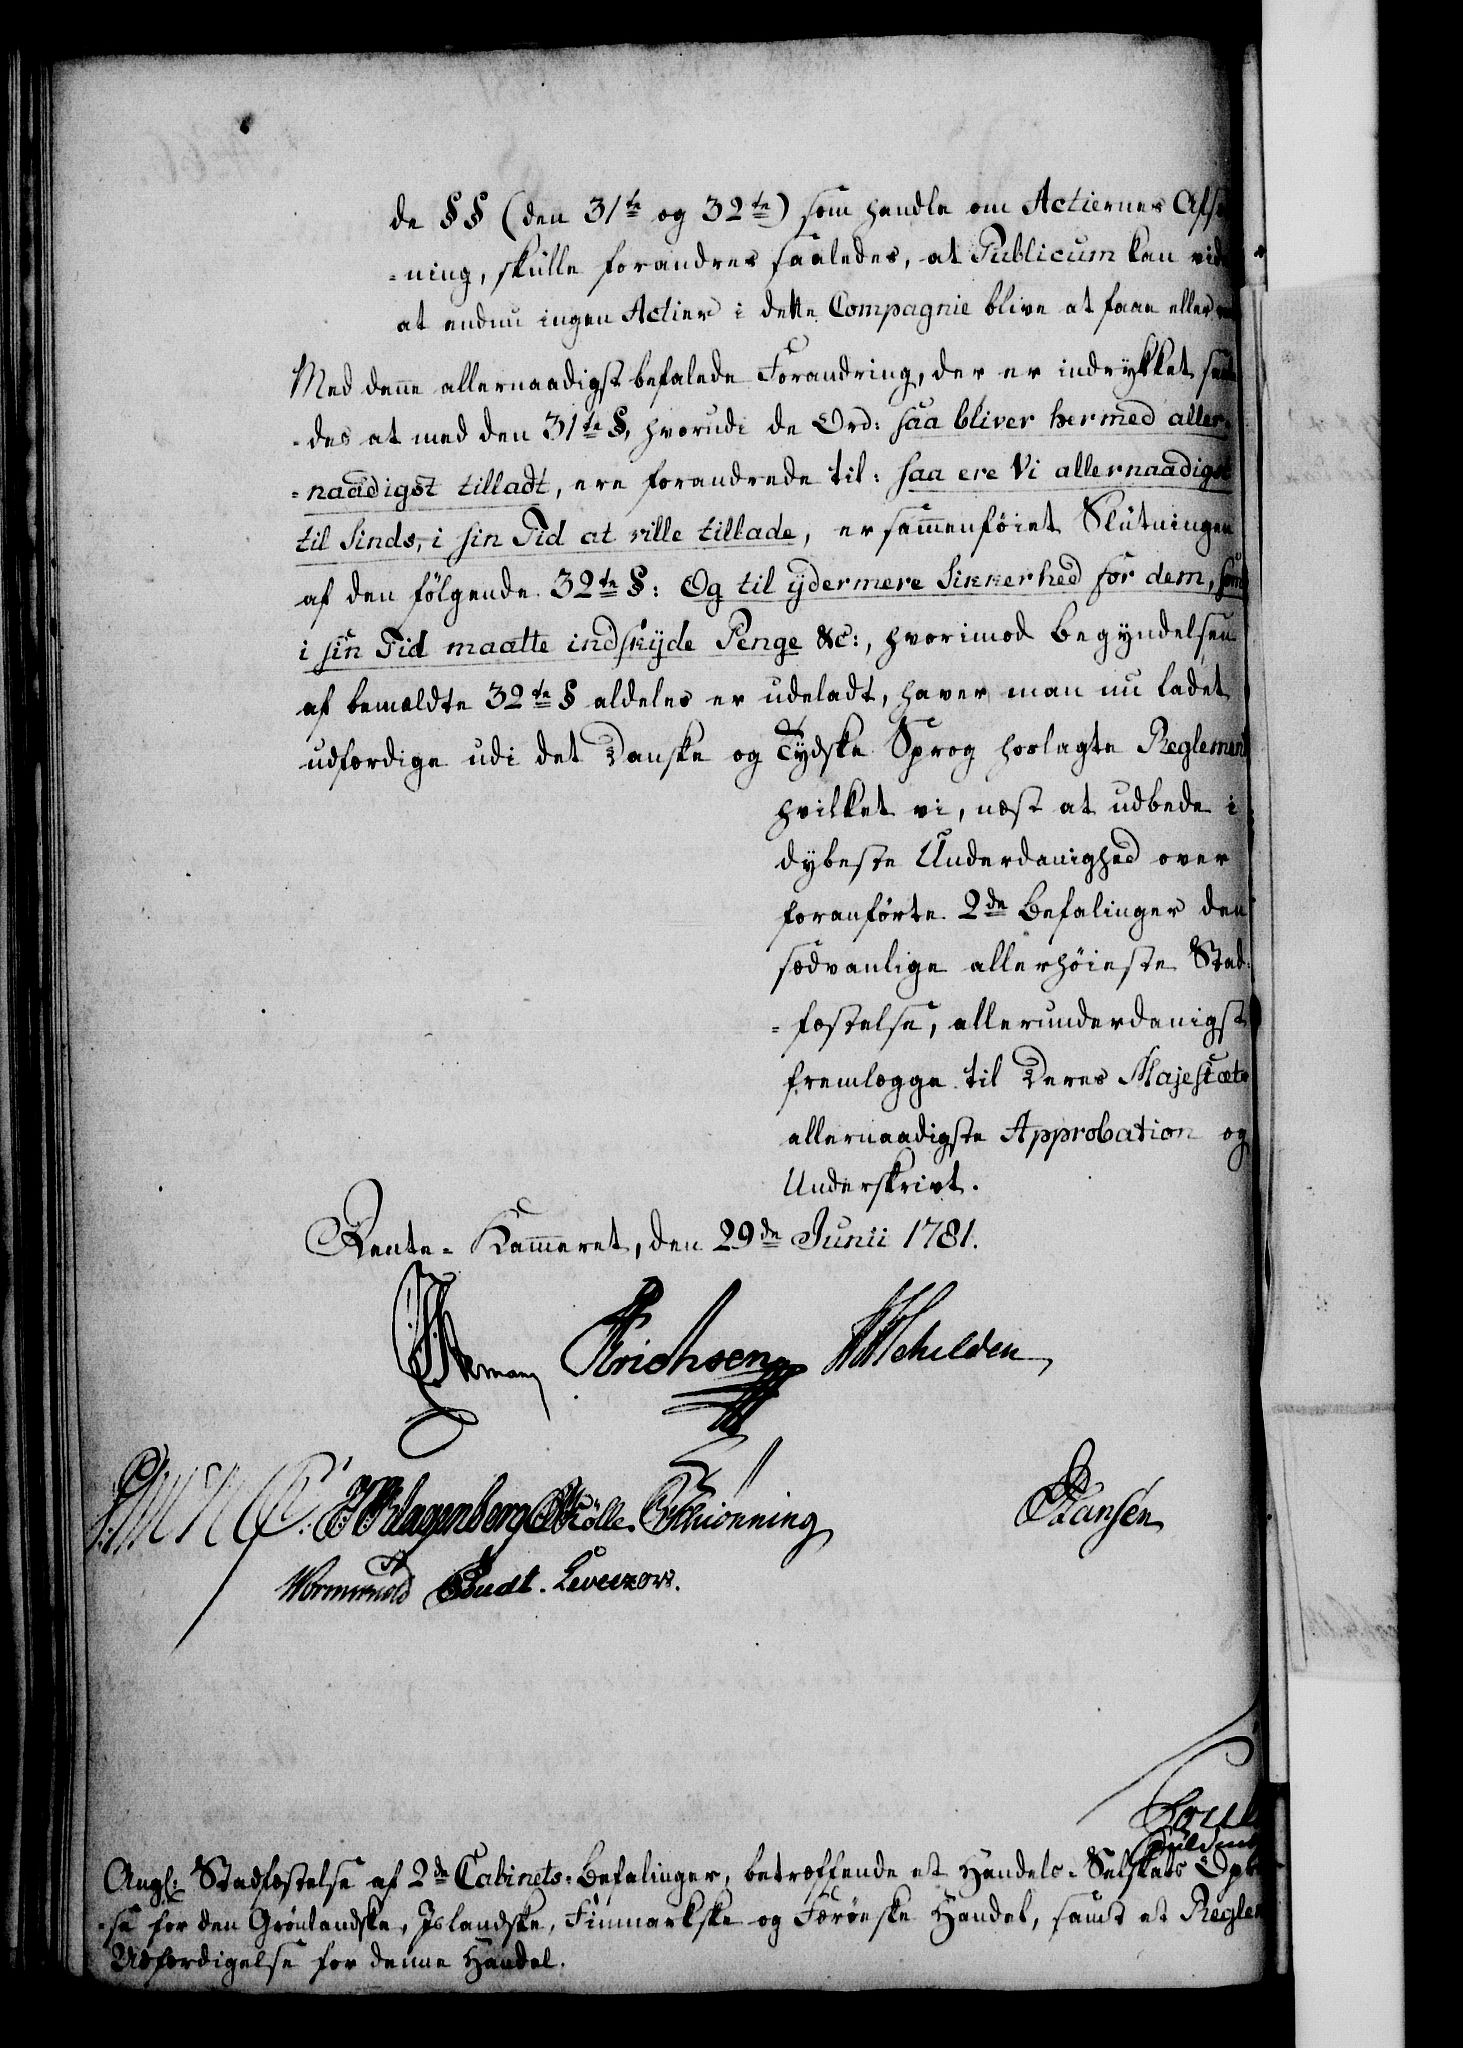 de §§ (den 31te og 32te) som handle om Actiernes
-ning, skulle forandres saaledes, at Publicum kan
at endnu ingen Actier i dette Compagnie blive at faae eller
Med denne allernaadigst befalede Forandring, der er indrykket
-des at med den 31te §, hvorudi de Ord: saa bliver hermed aller-
-naadigst tilladt, ere forandrede til: saa ere Vi allernaadigst
til Sinds, i sin Tid at ville tillade, er sammenföiet Slutningen
af den fölgende 32te §: Og til ydermere Sikkerhed for dem, som
i sin Tid maatte indskyde Penge &c:, hvorimod Begyndelsen
af bemældte 32te § aldeles er udeladt, haver man nu ladet
udfærdige udi det Danske og Tydske Sprog hoslagte Reglement
hvilket vi, næst at udbede i
dybeste Underdanighed over
foranførte 2de Befalinger den
sædvanlige allerhöieste Stad-
-fæstelse, allerunderdanigst
fremlægge til Deres Majestæts
allernaadigste Approbation og
Underskrivt.
Rente-Kammeret, den 29de Junii 1781.
Erichsen Schilden
Klagenberg Thrönning Hansen
Wormskiold Budt. Levetzow.
Guldberg
Angl: Stadfæstelse af 2de Cabinets-Befalinger, betræffende et Handels-Selskabs
-se for den Grönlandske, Islandske, Finmarkske og Færöeske Handel, samt et
Udfærdigelse for denne Handel.